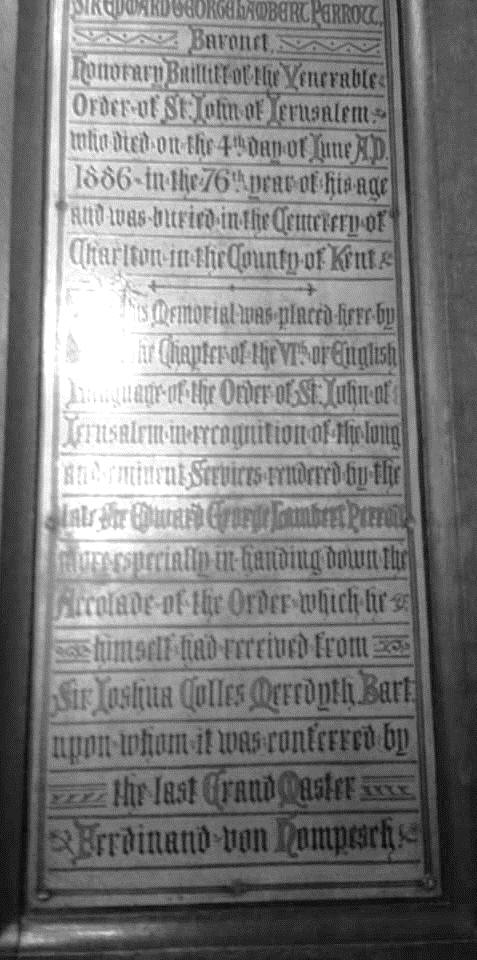 SIR EDWARD GEORGE LAMBERT PERROTT,
Baronet,
Honorary Bailiff of the Venerable
Order of St. John of Jerusalem
who died on the 4th day of June A.D.
1886 in the 76th year of his age
and was buried in the Cemetery of
Charlton in the County of Kent
This Memorial was placed here by
the Chapter of the VIth or English
Language of the Order of St. John of
Jerusalem in recognition of the long
and eminent Services rendered by the
late Sir Edward George Lambert Perrott
more especially in handing down the
Accolade of the Order which he
himself had received from
Sir Joshua Colles Meredyth Bart
upon whom it was conferred by
the last Grand Master
Ferdinand von Hompesch